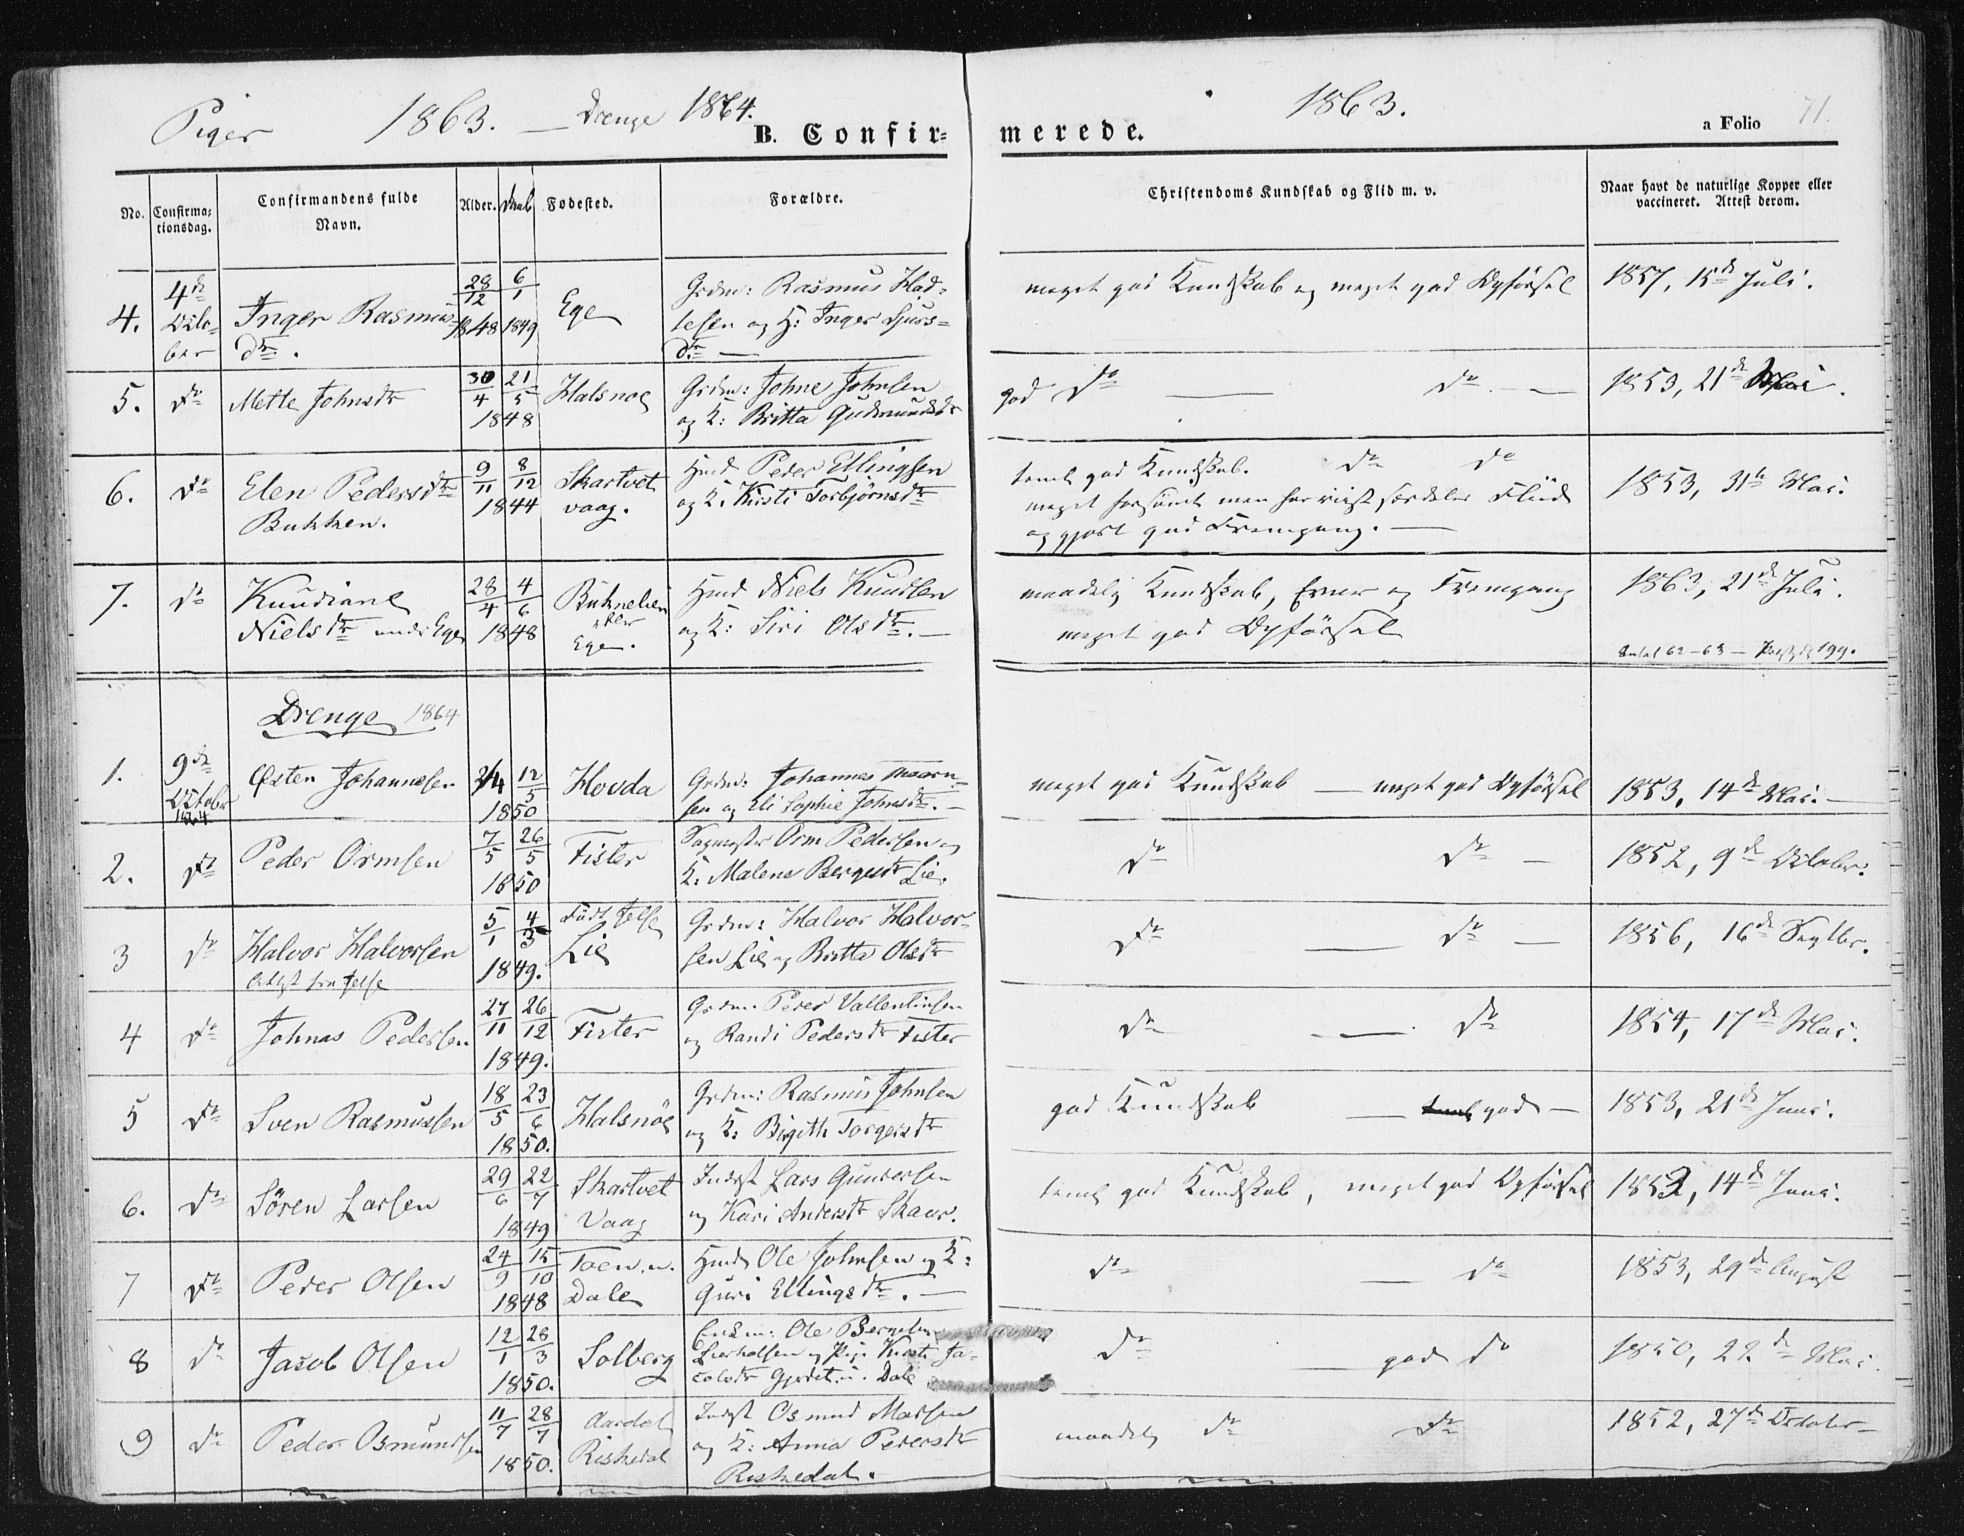 Piger 1863. — Drenge 1864.
B. Confirmerede.
1863.
a Folio 71.
No.
Confirmationsdag.
Confirmandens fulde Navn.
Alder.
Daab
Fødested.
Forældre.
Christendoms Kundskab og Flid m. v.
Naar havt de naturlige Kopper eller vaccineret. Attest derom.
4. 4de October Inger Rasmusdtr. 28/12 1848 6/1 1849 Ege Grdm: Rasmus Had-
lesen og H: Inger Sjurs-
dtr — meget god Kundskab og meget god Opførsel 1857, 15de Juli.
5. do Mette Johnsdtr 30/4 21/5 1848 Halsnoe Grdm: Johne Johnsen
og K: Britta Gudmundsdtr god do — do — 1853, 21de Mai.
6. do Elen Pedersdtr
Bukken. 9/11 8/12 1844 Skartvet
vaag. Hmd Peder Ellingsen
og K. Kirsti Torbjørnsdtr teml god Kundskab. do do
meget forsømt men har viist særdeles Fliid
og gjort god Fremgang. — 1853, 31te Mai.
7. do Knudiane
Nielsdtr under Ege 28/4 4/6 1848 Buknelien
eller
Ege. Hmd Niels Knudsen
og K: Siri Olsdtr. — maadelig Kundskab, Evner og Fremgang
meget god Opførsel 1863, 21de Juli.
62-63 — 199.
Drenge 1864
1. 9de October 1864 Østen Johannesen 24/4 12/5 1850 Hovda Grdm: Johannes Thorn-
sen og Eli Sophie Johnsdtr. — meget god Kundskab — meget god Opførsel 1853, 14de Mai. —
2. do Peder Ormsen 7/5 26/5 1850 Fister Orm Pedersen og
K: Malene Bergesdtr Lie. do do — 1852, 9de October.
3 do Halvor Halvorsen
fra Jelse 5/1 4/3 1849. Født Jelse
Lie Grdm: Halvor Halvor-
sen Lie og Britta Olsdtr do — do — 1856, 16de Septbr.
4 do Johnas Pedersen 27/11 26/12 1849. Fister Grdm. Peder Vallentinsen
og Randi Pedersdtr Fister do — do 1854, 17de Mai.
5 do Sven Rasmussen 18/5 23/6 1850. Halsnöe Grdm: Rasmus Johnsen
og K: Birgith Torgersdtr god Kundskab — god — 1853, 21de Juni.
6. do Sören Larsen 29/6 22/7 1849 Skartvet
Vaag Inds Lars Gundersen
og Kari Andersdtr Skaar. temel god Kundskab, meget god Opførsel 1853, 14de Juni.
7 do Peder Olsen 24/9 15/10 1848 Toen u.
Dale Hmd Ole Johnsen og K:
Guri Ellingsdtr. — do — do 1853, 29de August
8 do Jacob Olsen 12/1 28/3 1850. Solberg Ole
og Pige Kirsti Ja-
cobsdtr Dale do — god do 1850, 22de Mai.
9 do Peder Osmundsen 11/7 28/7 1850. Aardal
Riskedal Indst Osmund
og K: Anna Pedersdtr
Riskedal. maadelig do do 1852, 27de October —